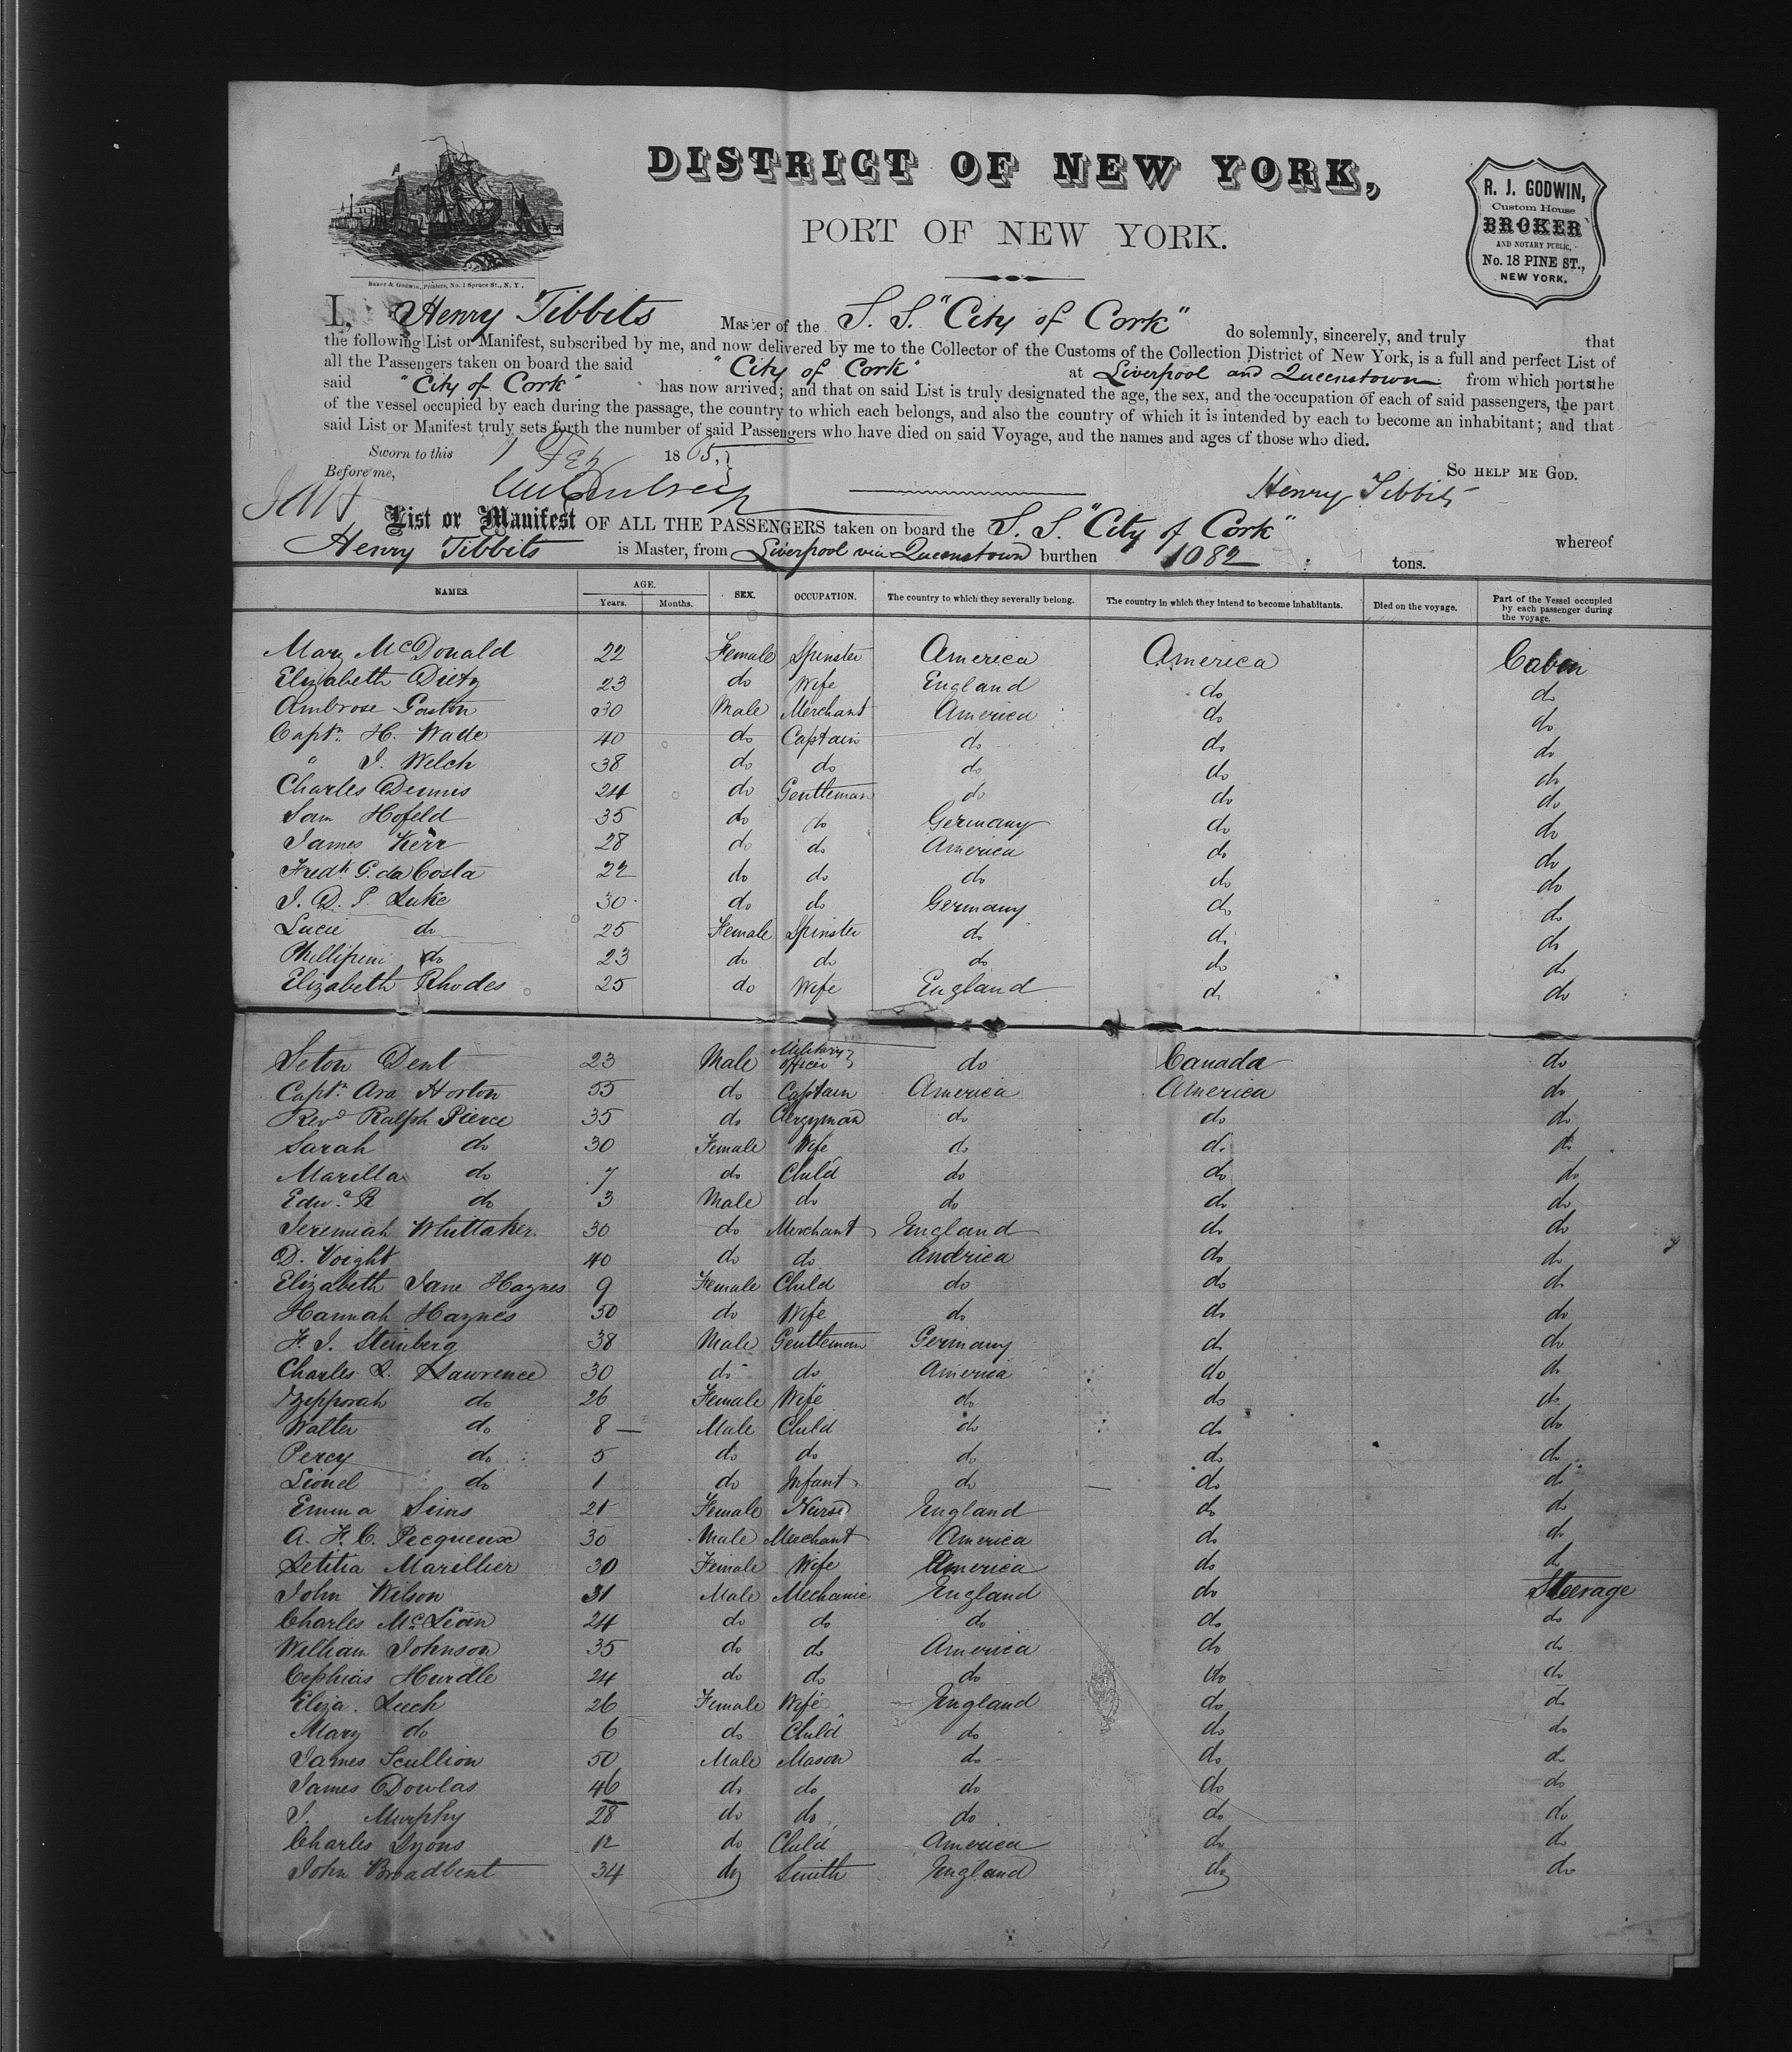 DISTRICT OF NEW YORK,
PORT OF NEW YORK.
R. J. GODWIN,
Custom House
BROKER
AND NOTARY PUBLIC,
No. 18 PINE ST.,
NEW YORK.
Baker & Godwin, Printers, No. 1 Spruce St., N. Y.
I, Henry Tibbits Master of the S. S. "City of Cork" do solemnly, sincerely, and truly that
the following List or Manifest, subscribed by me, and now delivered by me to the Collector of the Customs of the Collection District of New York, is a full and perfect List of
all the Passengers taken on board the said "City of Cork" at Liverpool and Queenstown from which ports the
said "City of Cork" has now arrived; and that on said List is truly designated the age, the sex, and the occupation of each of said passengers, the part
of the vessel occupied by each during the passage, the country to which each belongs, and also the country of which it is intended by each to become an inhabitant; and that
said List or Manifest truly sets forth the number of said Passengers who have died on said Voyage, and the names and ages of those who died.
Sworn to this 1 Feb 1865,
So help me God.
Before me,
Henry Tibbits
List or Manifest OF ALL THE PASSENGERS taken on board the S. S. "City of Cork" whereof
Henry Tibbits is Master, from Liverpool via Queenstown burthen 1082 tons.
NAMES. AGE. Years. Months. SEX. OCCUPATION. The country to which they severally belong. The country in which they intend to become inhabitants. Died on the voyage. Part of the Vessel occupied by each passenger during the voyage.
Mary McDonald 22 Female Spinster America America Cabin
Elizabeth Dietz 23 do Wife England do do
Ambrose Gaston 30 Male Merchant America do do
Captn. H. Wade 40 do Captain do do do
" J. Welch 38 do do do do do
Charles Dennis 24 do Gentleman do do do
Sam Hofeld 35 do do Germany do do
James Kerr 28 do do America do do
Fredk G. da Costa 22 do do do do do
J. D. P. Luke 30 do do Germany do do
Lucie do 25 Female Spinster do do do
Phillipini do 23 do do do do do
Elizabeth Rhodes 25 do Wife England do do
Seton Dent 23 Male Military officer do Canada do
Captn. Ara Horton 55 do Captain America America do
Revd Ralph Pierce 35 do Clergyman do do do
Sarah do 30 Female Wife do do do
Marilla do 7 do Child do do do
Edwd. R do 3 Male do do do do
Jeremiah Whittaker 30 do Merchant England do do
D. Voight 40 do do America do do
Elizabeth Jane Haynes 9 Female Child do do do
Hannah Haynes 50 do Wife do do do
H. J. Steinberg 38 Male Gentleman Germany do do
Charles L. Lawrence 30 do do America do do
Zepporah do 26 Female Wife do do do
Walter do 8 Male Child do do do
Percy do 5 do do do do do
Lionel do 1 do Infant do do do
Emma Sims 21 Female Nurse England do do
A. H. C. Pecqueux 30 Male Merchant America do do
Letitia Marillier 30 Female Wife America do do
John Wilson 31 Male Mechanic England do Steerage
Charles McLean 24 do do do do do
William Johnson 35 do do America do do
Cephias Hurdle 24 do do do do do
Eliza. Leech 26 Female Wife England do do
Mary do 6 do Child do do do
James Scullion 50 Male Mason do do do
James Dowlas 46 do do do do do
J. Murphy 28 do do do do do
Charles Lyons 12 do Child America do do
John Broadbent 34 do Smith England do do